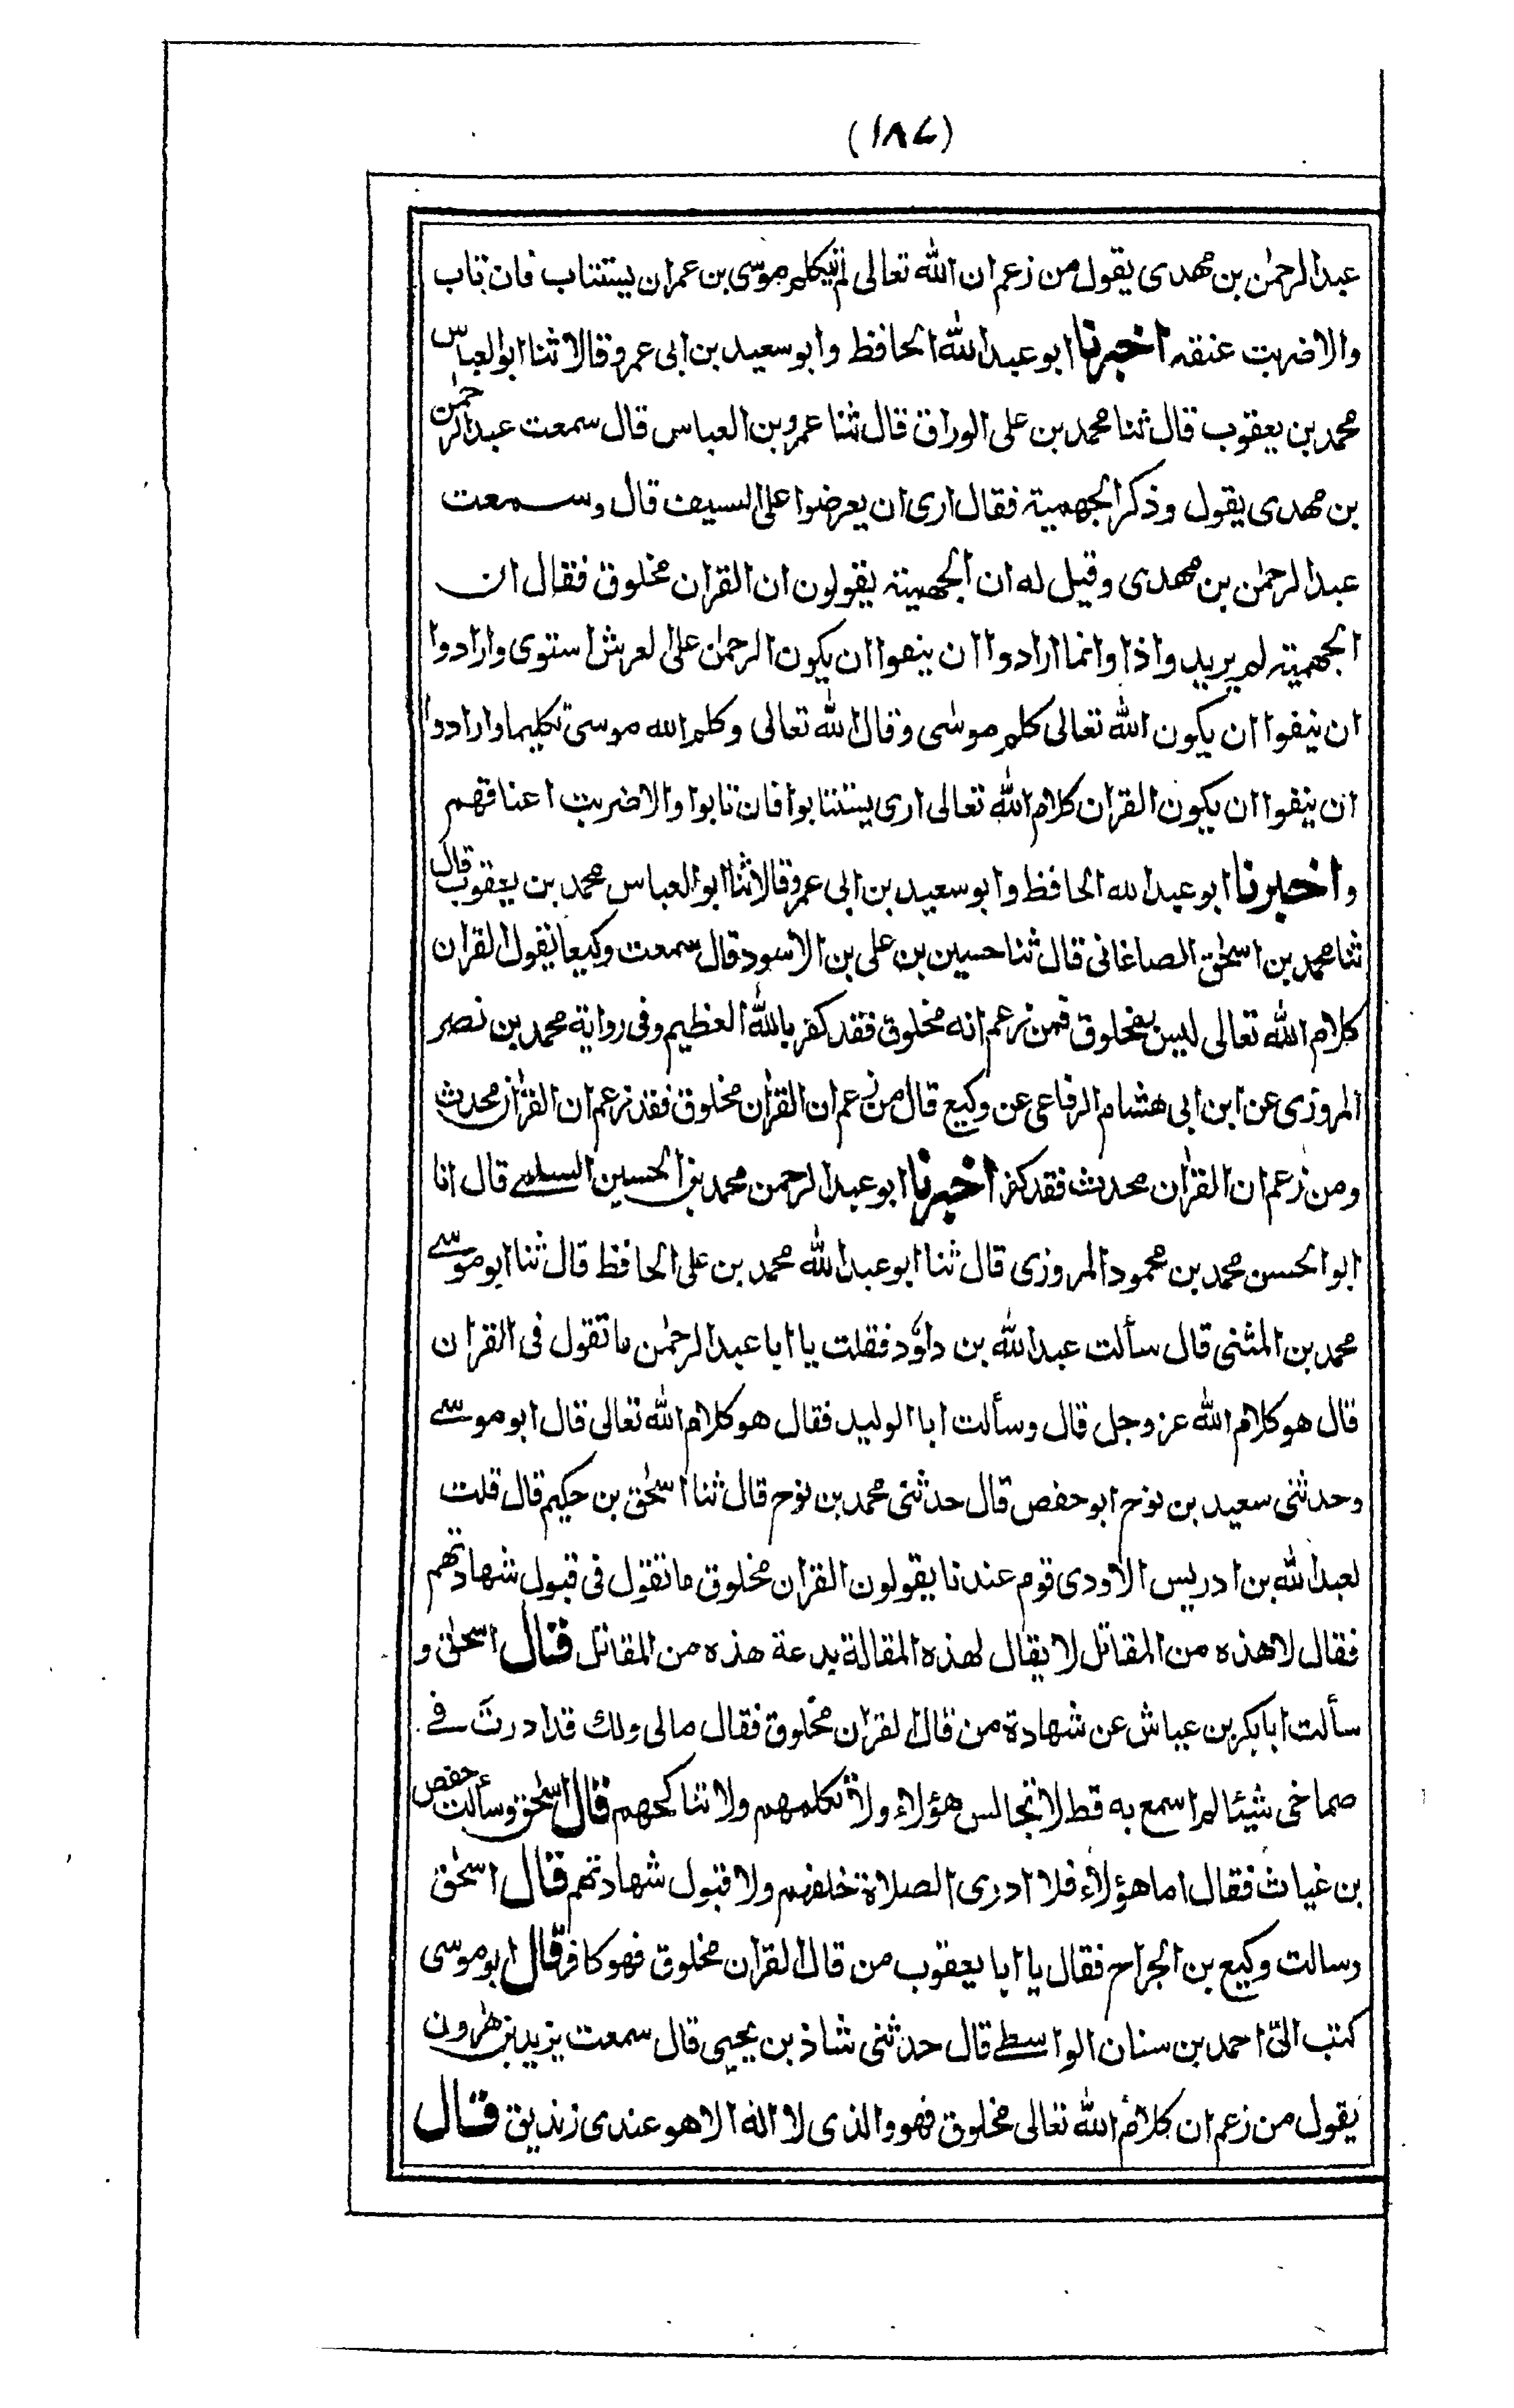 (١٨٧)
عبدالرحمٰن بن مهدى يقول من زعم ان الله تعالى لم يكلم موسى بن عمران يستتاب فان تاب
والا ضربت عنقه اخبرنا ابو عبد الله الحافظ وابو سعيد بن ابى عمرو قالا ثنا ابوالعباس
محمد بن يعقوب قال ثنا محمد بن على الوراق قال ثنا عمرو بن العباس قال سمعت عبدالرحمٰن
بن مهدى يقول وذكر الجهمية فقال ارى ان يعرضوا على السيف قال وسمعت
عبدالرحمٰن بن مهدى وقيل له ان الجهمية يقولون ان القران مخلوق فقال ان
الجهمية لم يريدوا ذا وانما ارادوا ان ينفوا ان يكون الرحمٰن على العرش استوى وارادوا
ان ينفوا ان يكون الله تعالى كلم موسٰى وقال الله تعالى وكلم الله موسى تكليما وارادوا
ان ينفوا ان يكون القران كلام الله تعالى ارى يستتابوا فان تابوا والا ضربت اعناقهم
واخبرنا ابو عبد الله الحافظ وابو سعيد بن ابى عمرو قالا ثنا ابو العباس محمد بن يعقوب قال
ثنا محمد بن اسحٰق الصاغانى قال ثنا حسين بن على بن الاسود قال سمعت وكيعا يقول القران
كلام الله تعالى ليس بمخلوق فمن زعم انه مخلوق فقد كفر بالله العظيم وفى رواية محمد بن نصر
المروزى عن ابن ابى هشام الرفاعى عن وكيع قال من زعم ان القرٰان مخلوق فقد زعم ان القرٰان محدث
ومن زعم ان القرٰان محدث فقد كفر اخبرنا ابو عبد الرحمن محمد بن الحسين السلمے قال انا
ابو الحسن محمد بن محمود المروزى قال ثنا ابو عبد الله محمد بن على الحافظ قال ثنا ابو موسے
محمد بن المثنى قال سألت عبد الله بن داؤد فقلت يا ابا عبد الرحمٰن ما تقول فى القران
قال هو كلام الله عز وجل قال وسألت ابا الوليد فقال هو كلام الله تعالى قال ابو موسے
وحدثنى سعيد بن نوح ابو حفص قال حدثنى محمد بن نوح قال ثنا اسحٰق بن حكيم قال قلت
لعبد الله بن ادريس الاودى قوم عندنا يقولون القران مخلوق ما تقول فى قبول شهادتهم
فقال لا هذه من المقاتل لا يقال لهذه المقالة بدعة هذه من المقاتل قال اسحٰق و
سألت ابا بكر بن عياش عن شهادة من قال القران مخلوق فقال مالى ولك قد ادرت فے
صماخى شيئا لم اسمع به قط لا تجالس هؤلاء ولا تكلمهم ولا تناكحهم قال اسحٰق وسألت حفص
بن غياث فقال اما هؤلاء فلا ادرى الصلاة خلفهم ولا قبول شهادتهم قال اسحٰق
وسالت وكيع بن الجراح فقال يا ابا يعقوب من قال القران مخلوق فهو كافر قال ابو موسى
كتب الىّ احمد بن سنان الواسطے قال حدثنى شاذ بن يحيى قال سمعت يزيد بن هٰرون
يقول من زعم ان كلام الله تعالى مخلوق فهو والذى لا اله الا هو عندى زنديق قال